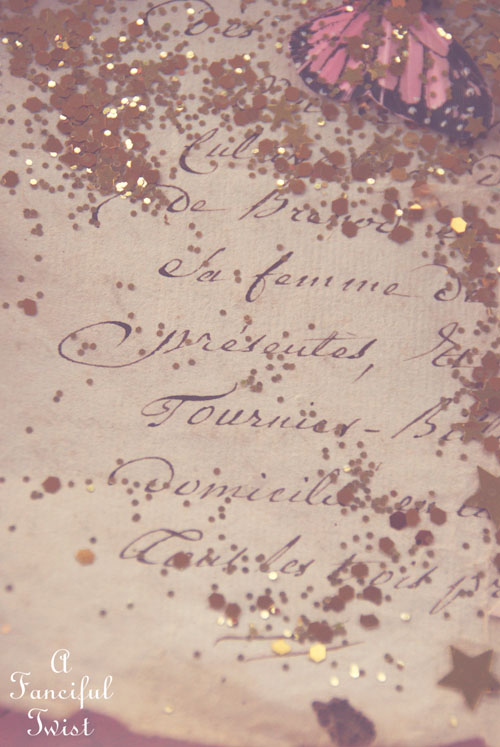 Des
De
Sa femme
présentes,
Tournier-
domicilié en
Tous les trois
A
Fanciful
Twist